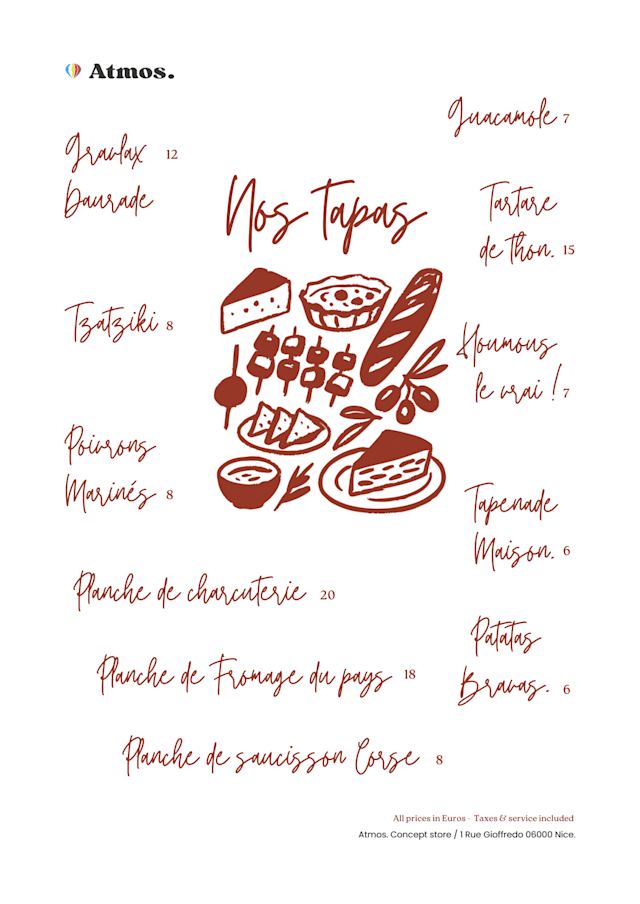 Atmos.
Guacamole 7
Gravlax 12
Daurade
Nos Tapas
Tartare
de thon. 15
Tzatziki 8
Houmous
le vrai ! 7
Poivrons
Marinés 8
Tapenade
Maison. 6
Planche de charcuterie 20
Patatas
Bravas. 6
Planche de Fromage du pays 18
Planche de saucisson Corse 8
All prices in Euros - Taxes & service included
Atmos. Concept store / 1 Rue Gioffredo 06000 Nice.